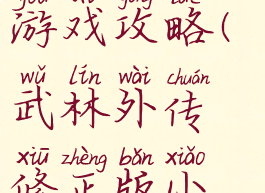 游戏攻略(
wǔ lín wài chuán
武林外传
xiū zhèng bǎn xiǎo
修正版小